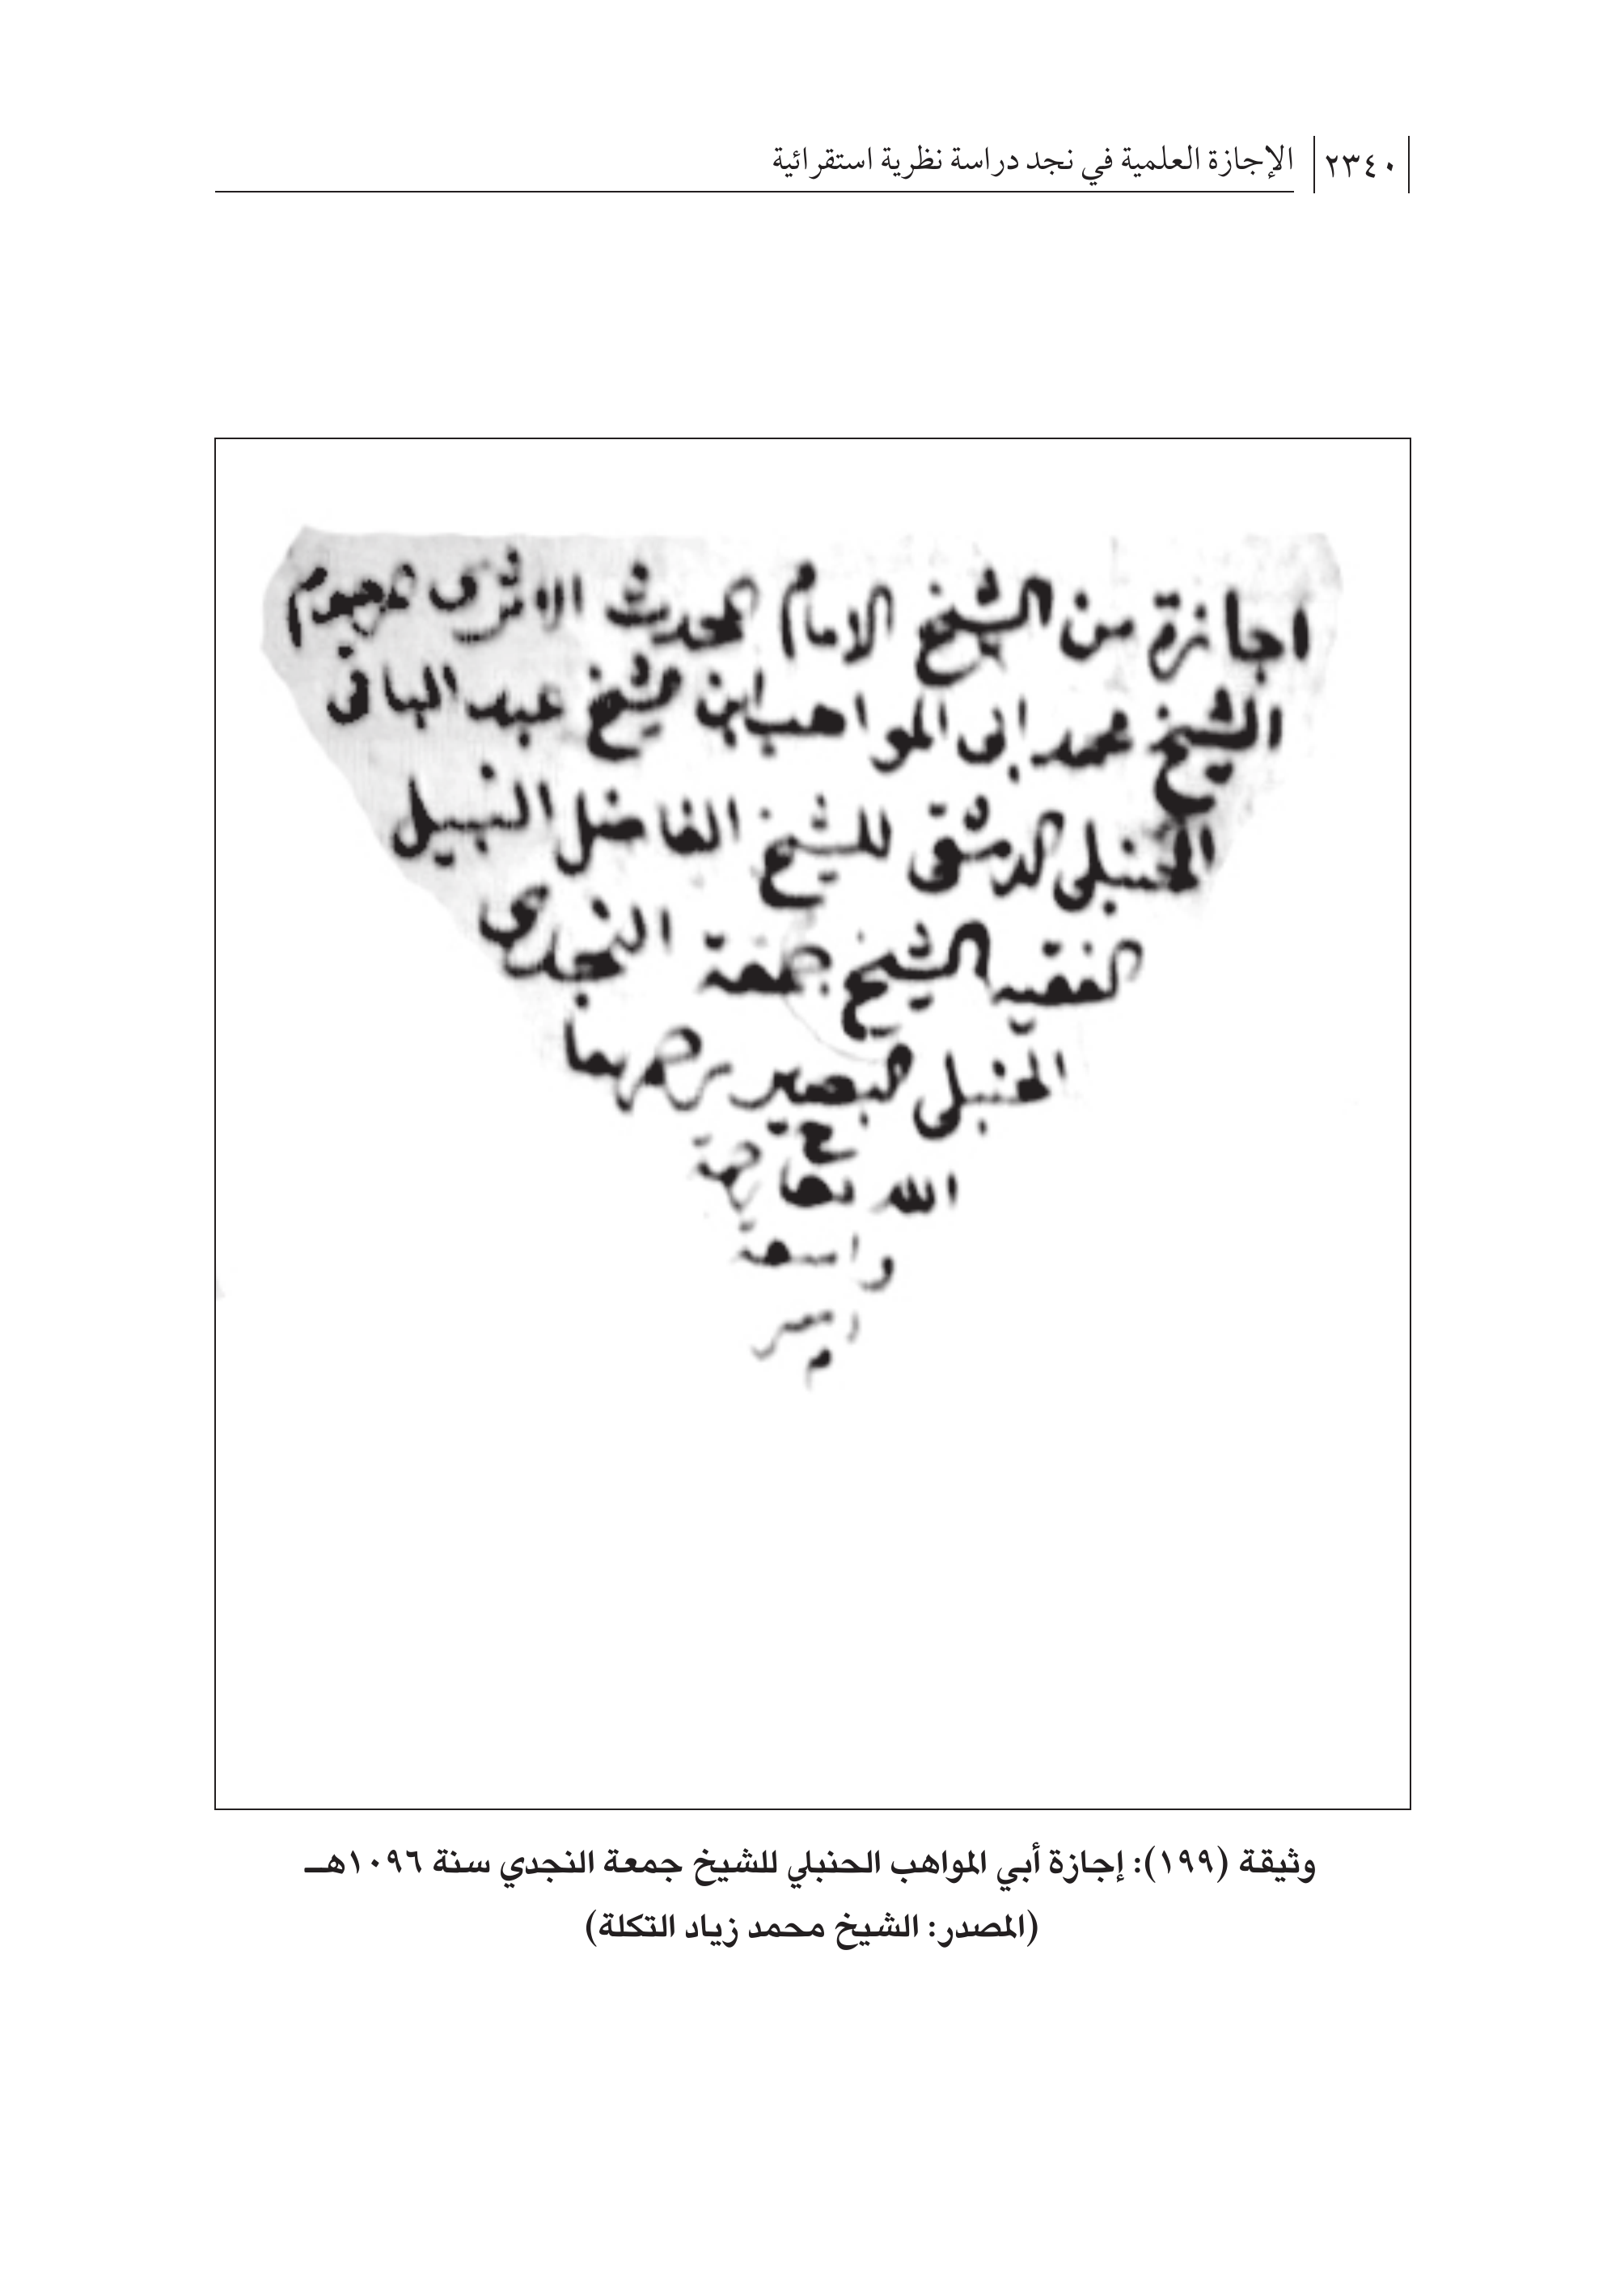 ٢٣٤٠ الإجازة العلمية في نجد دراسة نظرية استقرائية
اجازة من الشيخ الامام المحدث الاثرى المرحوم
الشيخ محمد ابى المواهب ابن الشيخ عبد الباقى
الحنبلى الدمشقى للشيخ الفاضل النبيل
الفقيه الشيخ جمعة النجدى
الحنبلى البصير رحمهما
الله تعالى رحمة
واسعة
امين
م
وثيقة (١٩٩): إجازة أبي المواهب الحنبلي للشيخ جمعة النجدي سنة ١٠٩٦هـ
(المصدر: الشيخ محمد زياد التكلة)